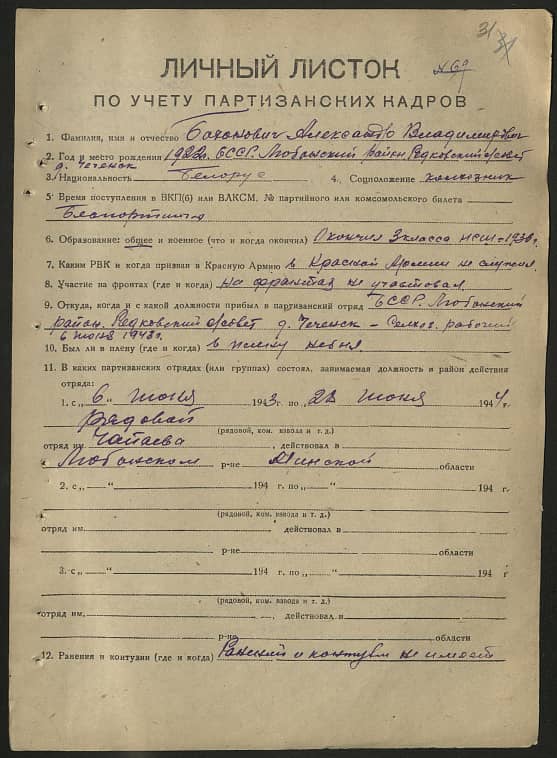 31
31
ЛИЧНЫЙ ЛИСТОК
ПО УЧЕТУ ПАРТИЗАНСКИХ КАДРОВ
1. Фамилия, имя и отчество Баханович Александр Владимирович
2. Год и место рождения 1922г. БССР. Любаньский район Редковский с/совет
д. Чеченск
3. Национальность Белорус 4. Соцположение колхозник
5. Время поступления в ВКП(б) или ВЛКСМ, № партийного или комсомольского билета
Беспартийный
6. Образование: общее и военное (что и когда окончил) Окончил 3 класса НСШ-1936г.
7. Каким РВК и когда призван в Красную Армию в Красной Армии не служил
8. Участие на фронтах (где и когда) на фронтах не участвовал
9. Откуда, когда и с какой должности прибыл в партизанский отряд БССР. Любаньский
район. Редковский с/совет д. Чеченск – рабочий
6 июня 1943г.
10. Был ли в плену (где и когда) в плену не был.
11. В каких партизанских отрядах (или группах) состоял, занимаемая должность и район действия
отряда:
1. с 6 июня 1943г. по 28 июня 1944г.
Рядовой
(рядовой, ком. взвода и т. д.)
отряд им. Чапаева, действовал в
Любанском р-не Минской области
2. с „ “ 194 г. по „ “ 194 г.
(рядовой, ком. взвода и т. д.)
отряд им. действовал в
р-не области
3. с „ “ 194 г. по „ “ 194 г
(рядовой, ком. взвода и т. д.)
отряд им. , действовал в
р-не области
12. Ранения и контузии (где и когда) Ранений и контузий не имеет